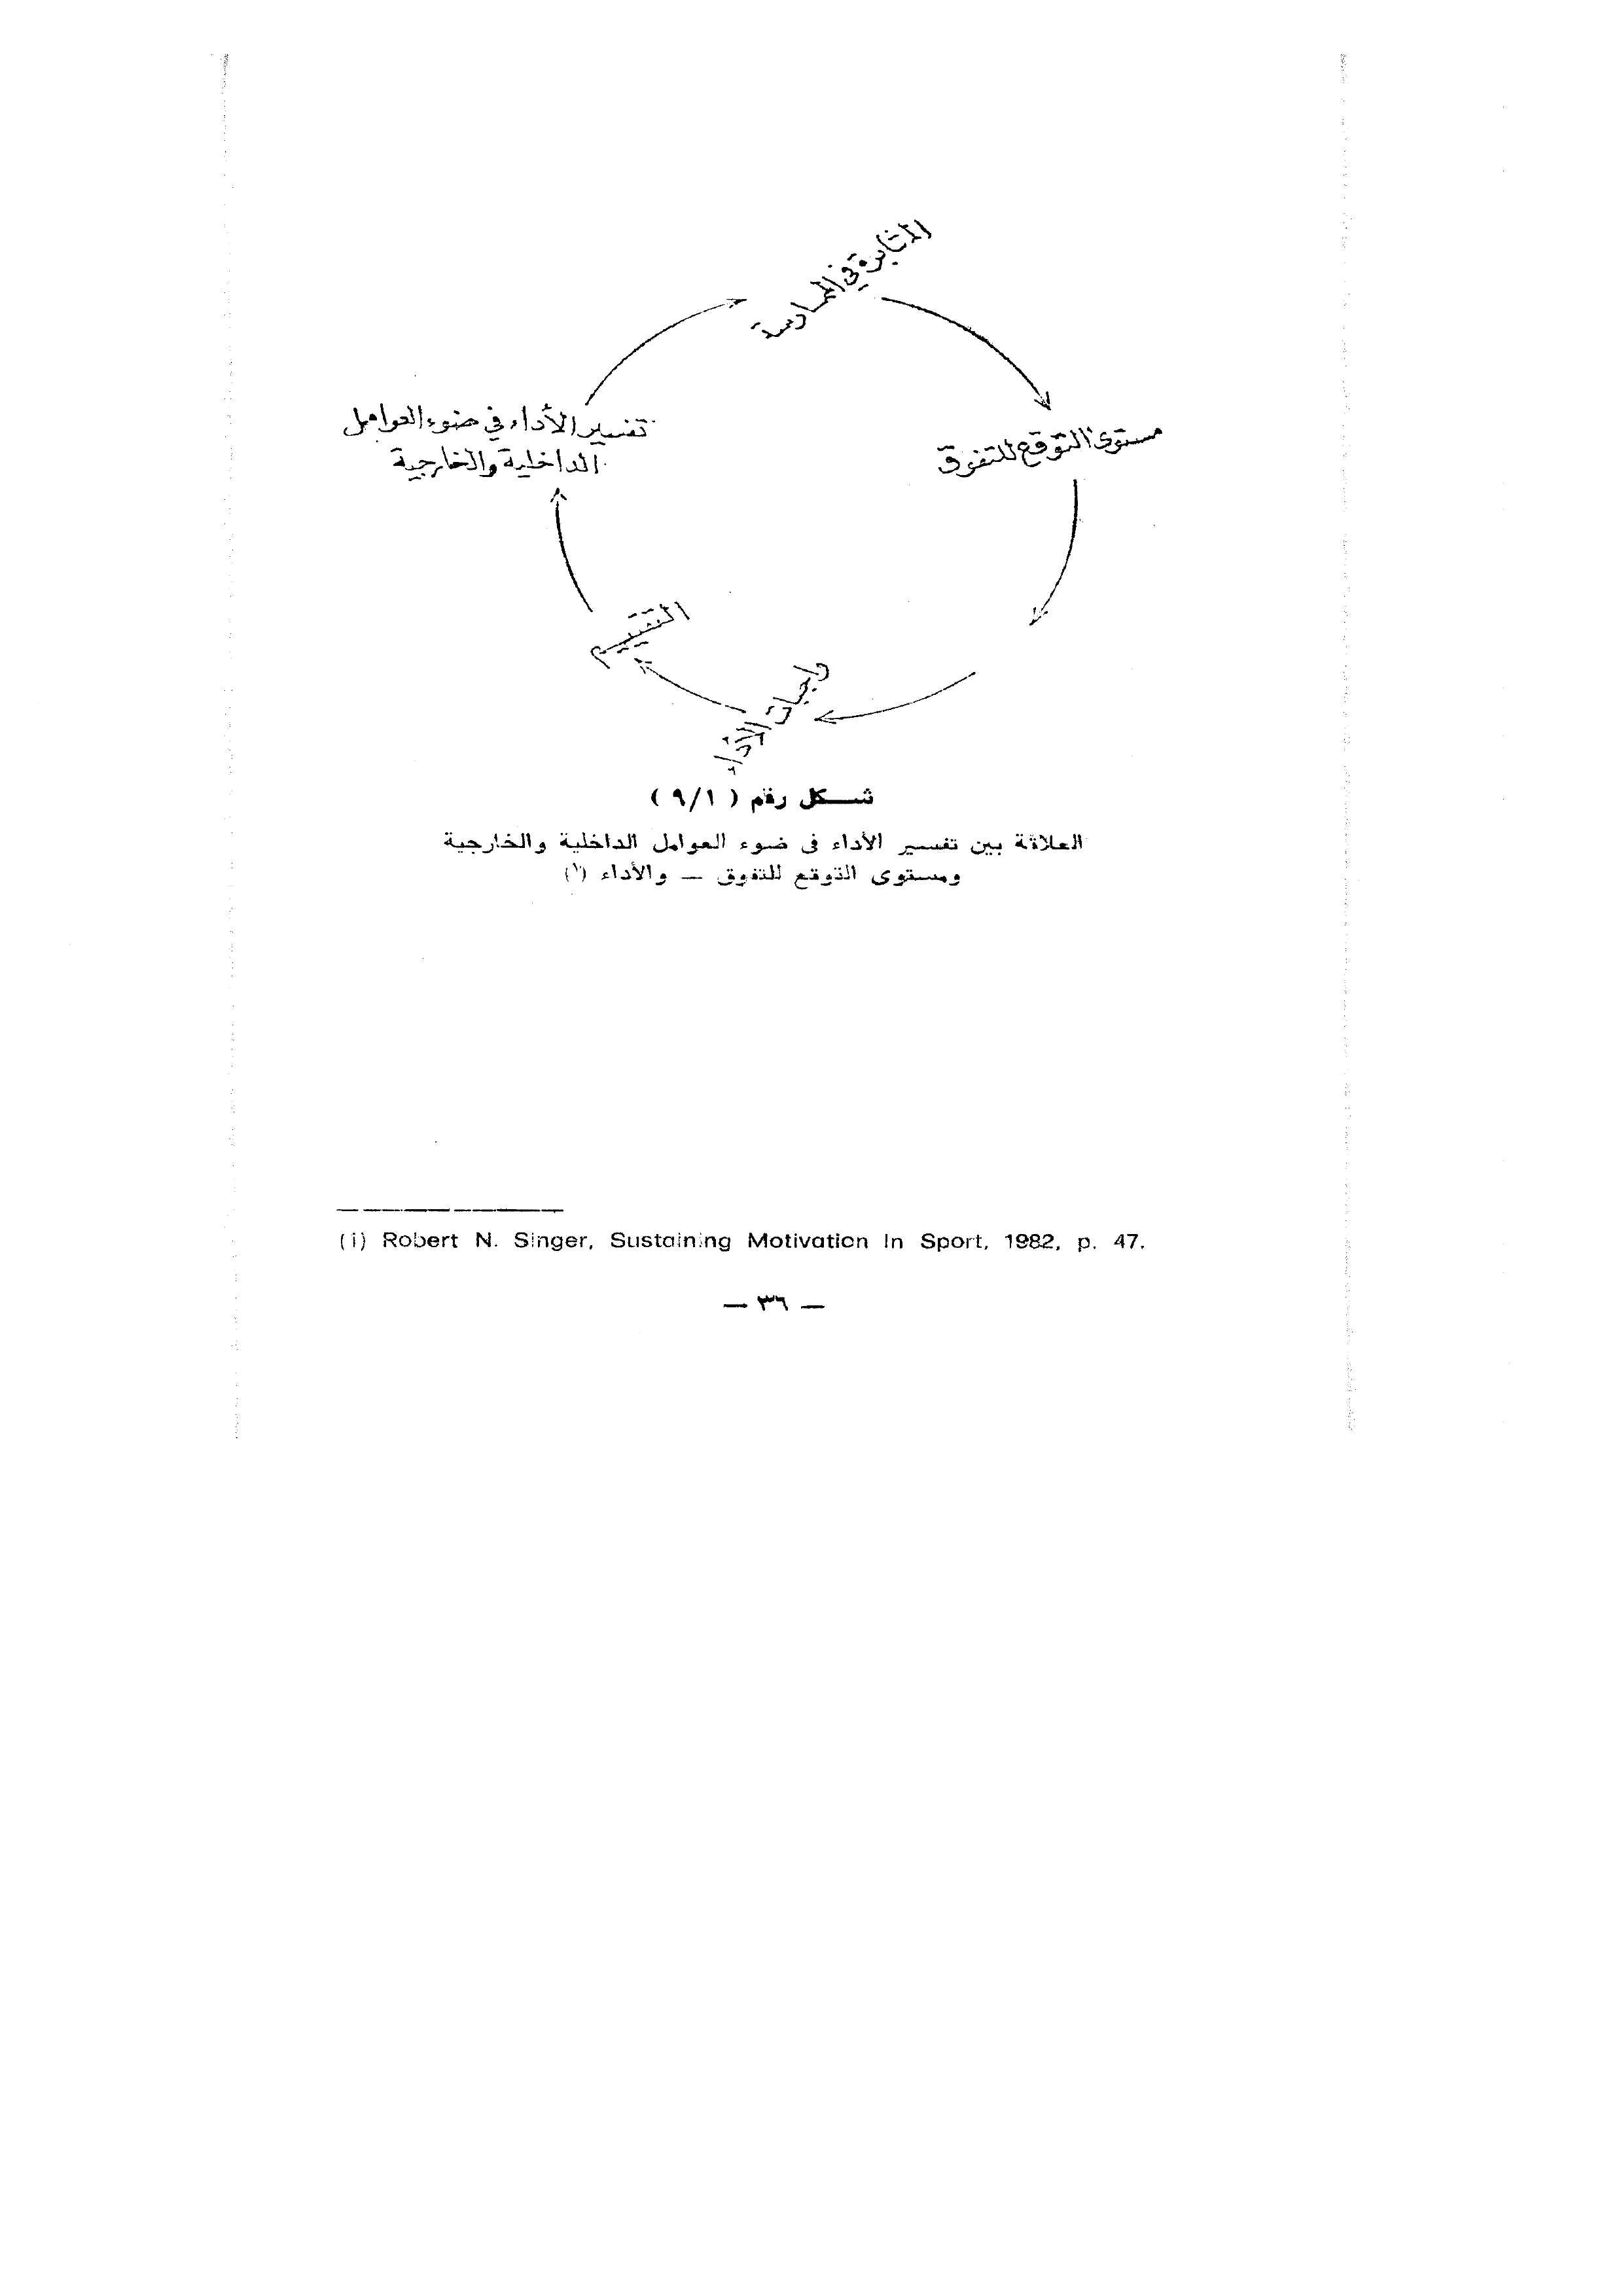 المثابرة في الممارسة
مستوى التوقع للتفوق
تفسير الأداء في ضوء العوامل
الداخلية والخارجية
التقييم
واجبات الأداء
شكل رقم ( ٩/١ )
العلاقة بين تفسير الأداء فى ضوء العوامل الداخلية والخارجية
ومستوى التوقع للتفوق — والأداء (١)
(i) Robert N. Singer, Sustaining Motivation In Sport, 1982, p. 47.
— ٣٦ —